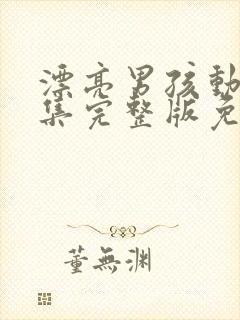 漂亮男孩動
集完整版免
董無渊